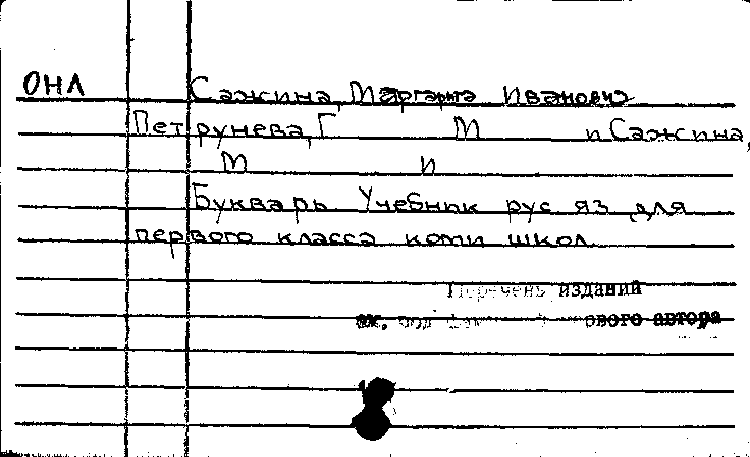 ОНЛ
Сажина, Маргарита Ивановна
Петрунева, Г М и Сажина,
М И
Букварь Учебник рус яз для
первого класса коми школ.
Перечень изданий
см. под фам. первого автора